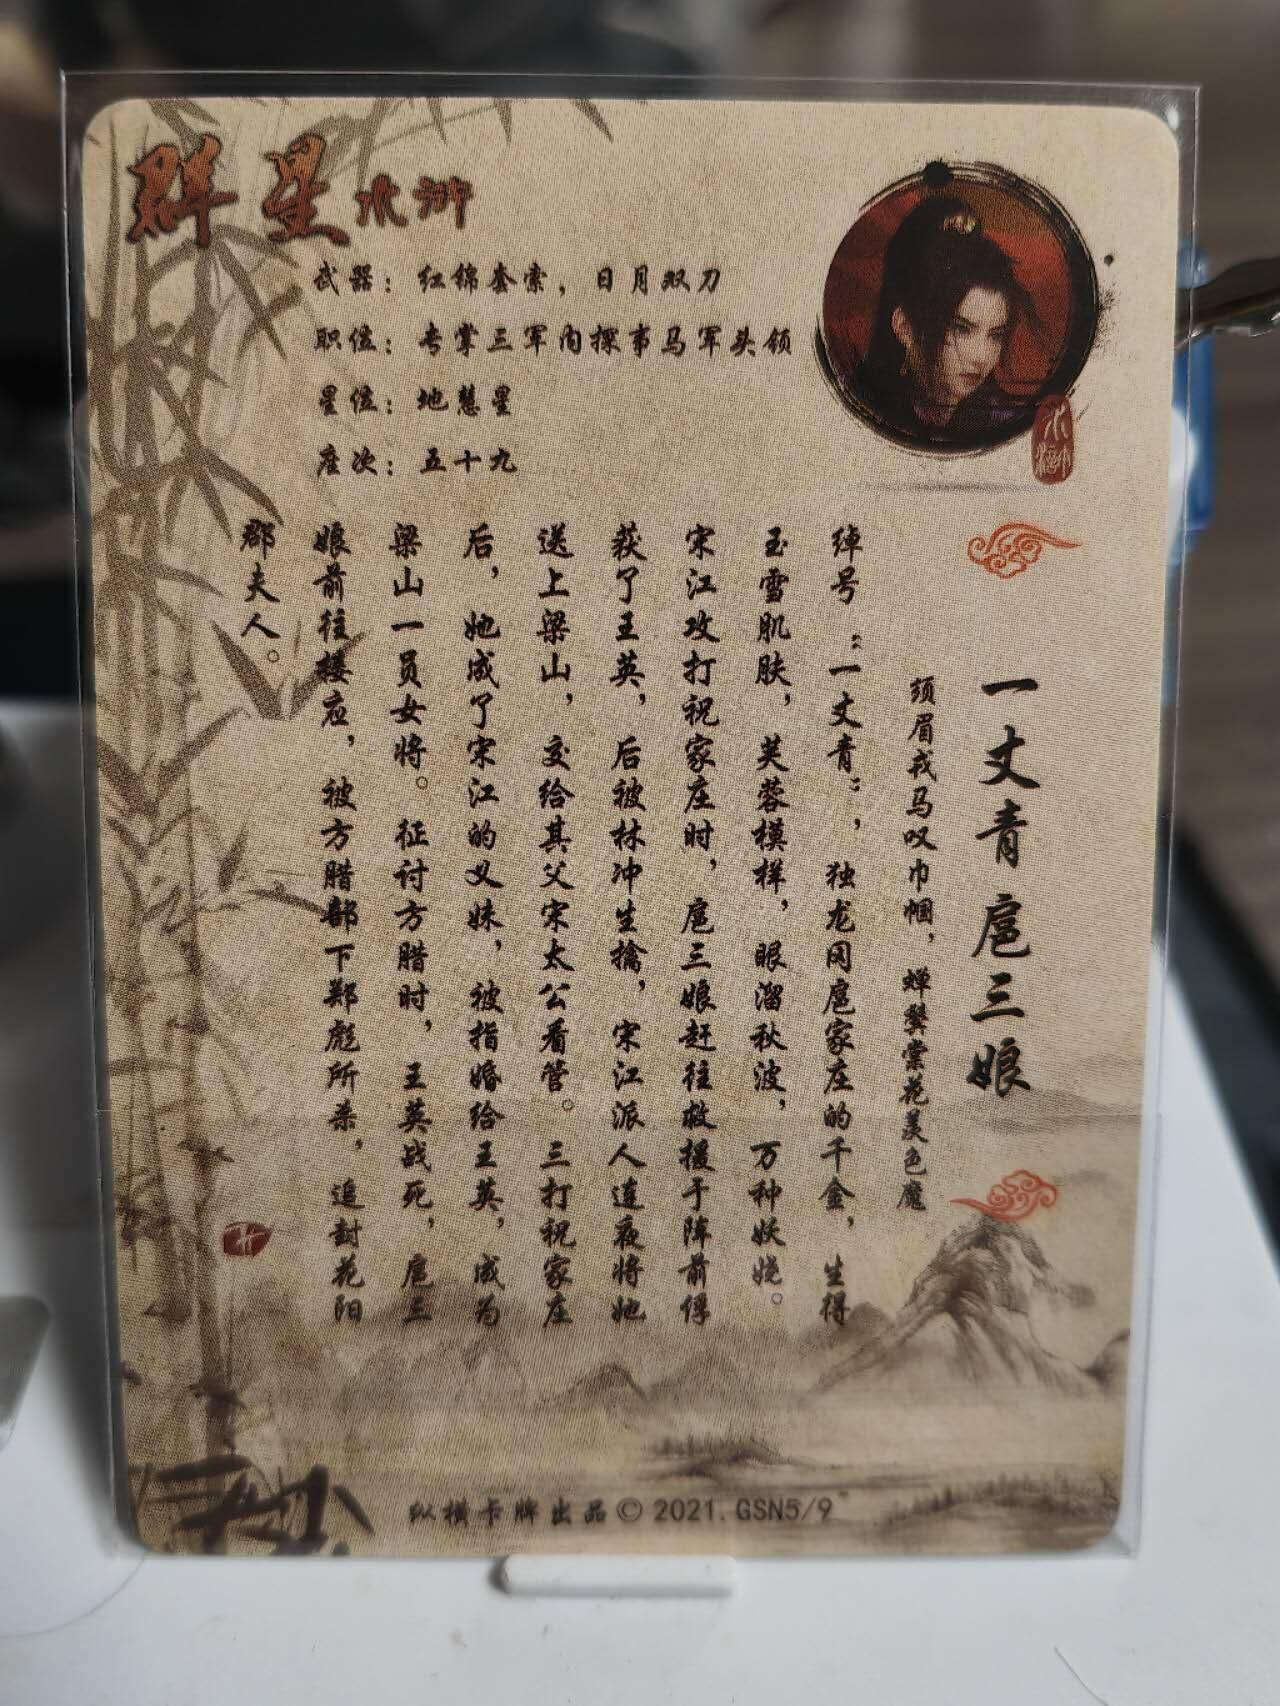 群星水浒
武器：红锦套索，日月双刀
职位：专掌三军内探事马军头领
星位：地慧星
座次：五十九
水浒
一丈青 扈三娘
须眉戎马叹巾帼，蝉鬓棠花美色魔
绰号：一丈青：，独龙冈扈家庄的千金，生得
玉雪肌肤，芙蓉模样，眼溜秋波，万种妖娆。
宋江攻打祝家庄时，扈三娘赶往救援于阵前俘
获了王英，后被林冲生擒，宋江派人连夜将她
送上梁山，交给其父宋太公看管。三打祝家庄
后，她成了宋江的义妹，被指婚给王英，成为
梁山一员女将。征讨方腊时，王英战死，扈三
娘前往接应，被方腊部下郑彪所杀，追封花阳
郡夫人。
纵横卡牌出品© 2021.GSN5/9